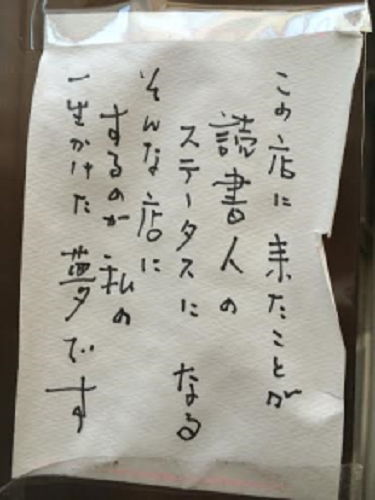 この店に来たことが
読書人の
ステータスになる
そんな店に
するのが私の
一生かけた夢です